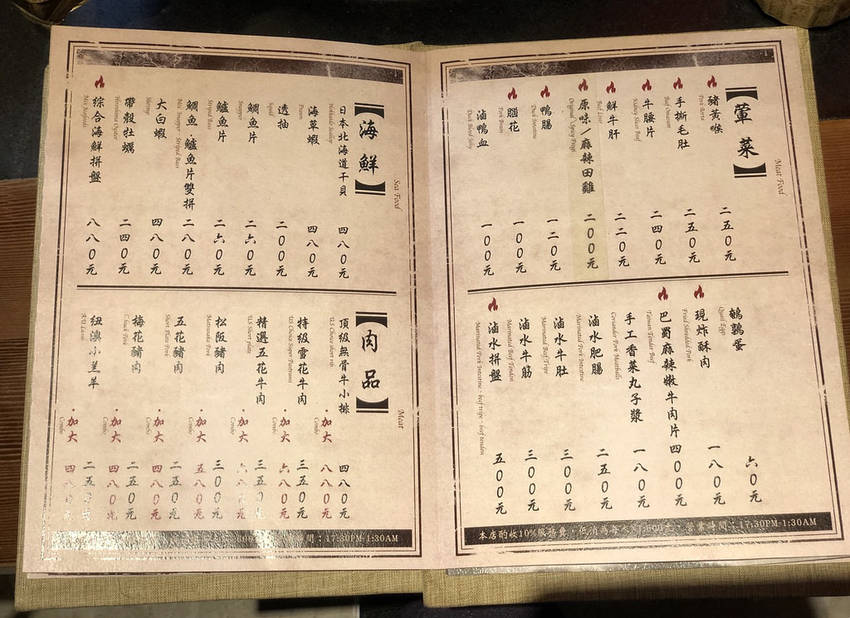 【葷菜】
Meat Food
豬黃喉
Pork Aorta
二五0元
手撕毛肚
Beef Omasum
二五0元
牛腰片
Kidney Slice Beef
二四0元
鮮牛肝
Beef Liver
二二0元
原味/麻辣田雞
Original / Spicy Frogs
二00元
鴨腸
Duck Intestine
一二0元
腦花
Pork Brain
一00元
滷鴨血
Duck Blood Jelly
一00元
鵪鶉蛋
Quail Eggs
六0元
現炸酥肉
Fried Shredded Pork
一八0元
巴蜀麻辣嫩牛肉片
Taiwan Tender Beef
四00元
手工香菜丸子漿
Coriander Pork Meatballs
一八0元
滷水肥腸
Marinated Pork Intestine
二五0元
滷水牛肚
Marinated Beef Tripe
三00元
滷水牛筋
Marinated Beef Tendon
三00元
滷水拼盤
Marinated Pork Intestine、beef tripe、beef tendon
五00元
本店酌收10%服務費，低消為每人 營業時間：17:30PM-1:30AM
【海鮮】
Sea Food
日本北海道干貝
Hokkaido Scallop
四八0元
海草蝦
Prawn
四八0元
透抽
Squid
二00元
鯛魚片
Snapper
二六0元
鱸魚片
Striped Bass
二六0元
鯛魚·鱸魚片雙拼
Mix Snapper、Striped Bass
二八0元
大白蝦
Shrimp
四八0元
帶殼牡蠣
Hiroshima Oyster
二四0元
綜合海鮮拼盤
Mix Seafoods
八八0元
【肉品】
Meat
頂級無骨牛小排
U.S Choice short rib
四八0元
·加大
Combo
八八0元
特級雪花牛肉
US Choice Super Pastrami
三五0元
·加大
Combo
六八0元
精選五花牛肉
U.S Short plate
三五0元
·加大
Combo
六八0元
松阪豬肉
Matsusaka Pork
三00元
·加大
Combo
五八0元
五花豬肉
Short Plate Pork
二五0元
·加大
Combo
四八0元
梅花豬肉
二五0元
·加大
Combo
四八0元
紐澳小羔羊
二五0元
·加大
Combo
四八0元
時間：17:30PM-1:30AM